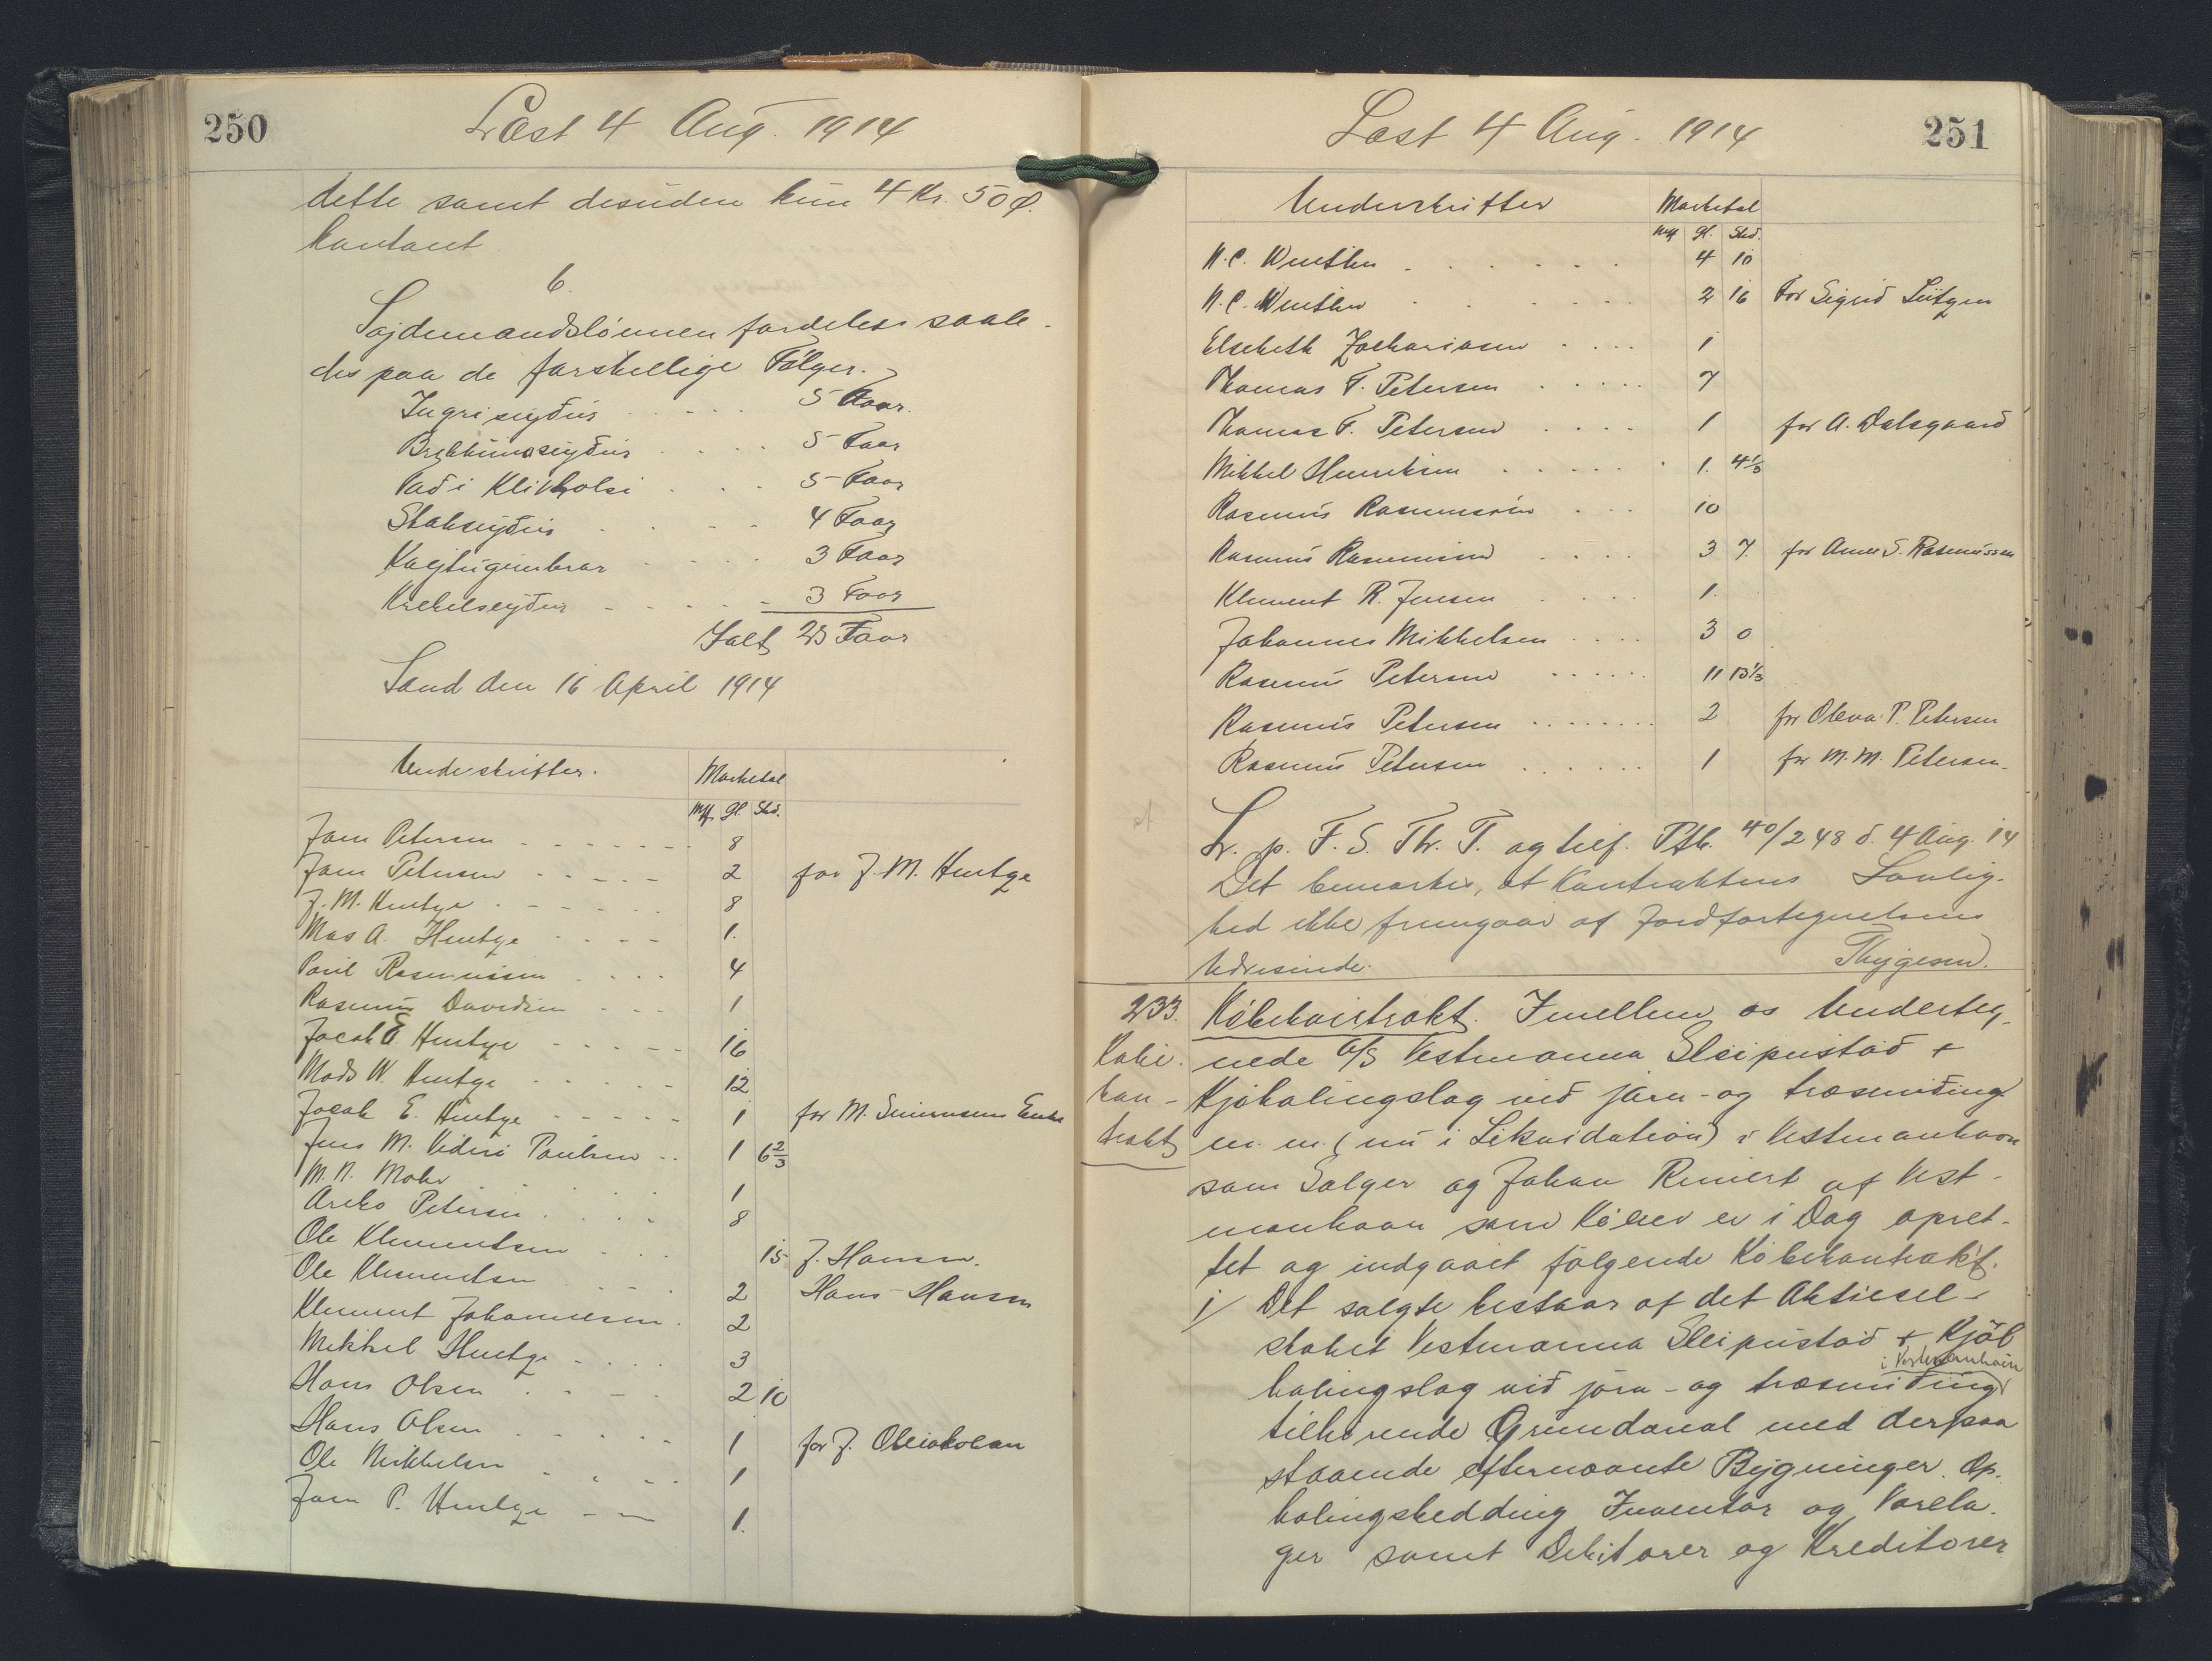 250
Læst 4 Aug. 1914
dette samt desuden kun 4 Kr. 50 Ø.
kontant
6.
Sejdemandslønnen fordeles saale-
des paa de forskellige Følger.
Ingriseyðus 5 Faar.
Brekkunaseyðus 5 Faar
Vað i Klivholsi 5 Faar
Stakseyðus 4 Faar
3 Faar
3 Faar
Ialt 25 Faar
Sand den 16 April 1914
Underskrifter. Marketal
Mk Gl. Skd.
Joen Petersen 8
Joen Petersen 2 for J. M. Hentze
J. M. Hentze 8
Mas A. Hentze 1.
Poul Rasmussen 4
Rasmus Davidsen 1
Jacob E. Hentze 16
Mads W. Hentze 12
Jacob E. Hentze 1 for M. Simonsens Enke
Jens M. Videri Poulsen 1 6 2/3
M. N. Mohr 1
Petersen 8
Ole Klementsen 15 J. Hansen.
Ole Klementsen 2 Hans Hansen
Klement Johannesen 2
Mikkel Hentze 3
Hans Olsen 2 10
Hans Olsen 1 for J.
Ole Mikkelsen 1
Joen P. Hentze 1.
Læst 4 Aug. 1914
251
Underskrifter Marketal
Mk Gl. Skd.
N. C. Winther 4 10
N. C. Winther 2 16 for Sigrid Lützen
Elsebeth Zachariasen 1
Thomas F. Petersen 7
Thomas F. Petersen 1 for A. Dalsgaard
Mikkel Henriksen 1. 4 1/3
Rasmus Rasmussen 10
Rasmus Rasmussen 3 7. for Anne S. Rasmussen
Klement R. Jensen 1.
Johannes Mikkelsen 3 0
Rasmus Petersen 11 13 1/3
Rasmus Petersen 2 for Oleva P. Petersen
Rasmus Petersen 1 for M. M. Petersen.
Lr. p. F. S. Thr. T. og tilf. Ptb. 40/248 d. 4 Aug. 14
Det bemærkes, at Kontraktens Lovlig-
hed ikke fremgaar af Jordfortegnelsens
Udvisende. Thygesen.
233. Købekontrakt. Imellem os Underteg-
Købe- nede A/S Vestmanna Sleipistøð +
kon- Kjøbalingslag við járn- og træsmiðing
trakt m. m. (nu i Likvidation) i Vestmanhavn
som Sælger og Johan Reinert af Vest-
manhavn som Køber er i Dag opret-
tet og indgaaet følgende Købekontrakt.
1/ Det solgte bestaar af det Aktiesel-
skabet Vestmanna Sleipistøð + Kjöl
i Vestmanhavn
halingslag við járn- og træsmiðing
tilhørende Grundareal med derpaa
staaende efternævnte Bygninger. Op-
halingsbedding Inventar og Varela-
ger samt Debitorer og Kreditorer